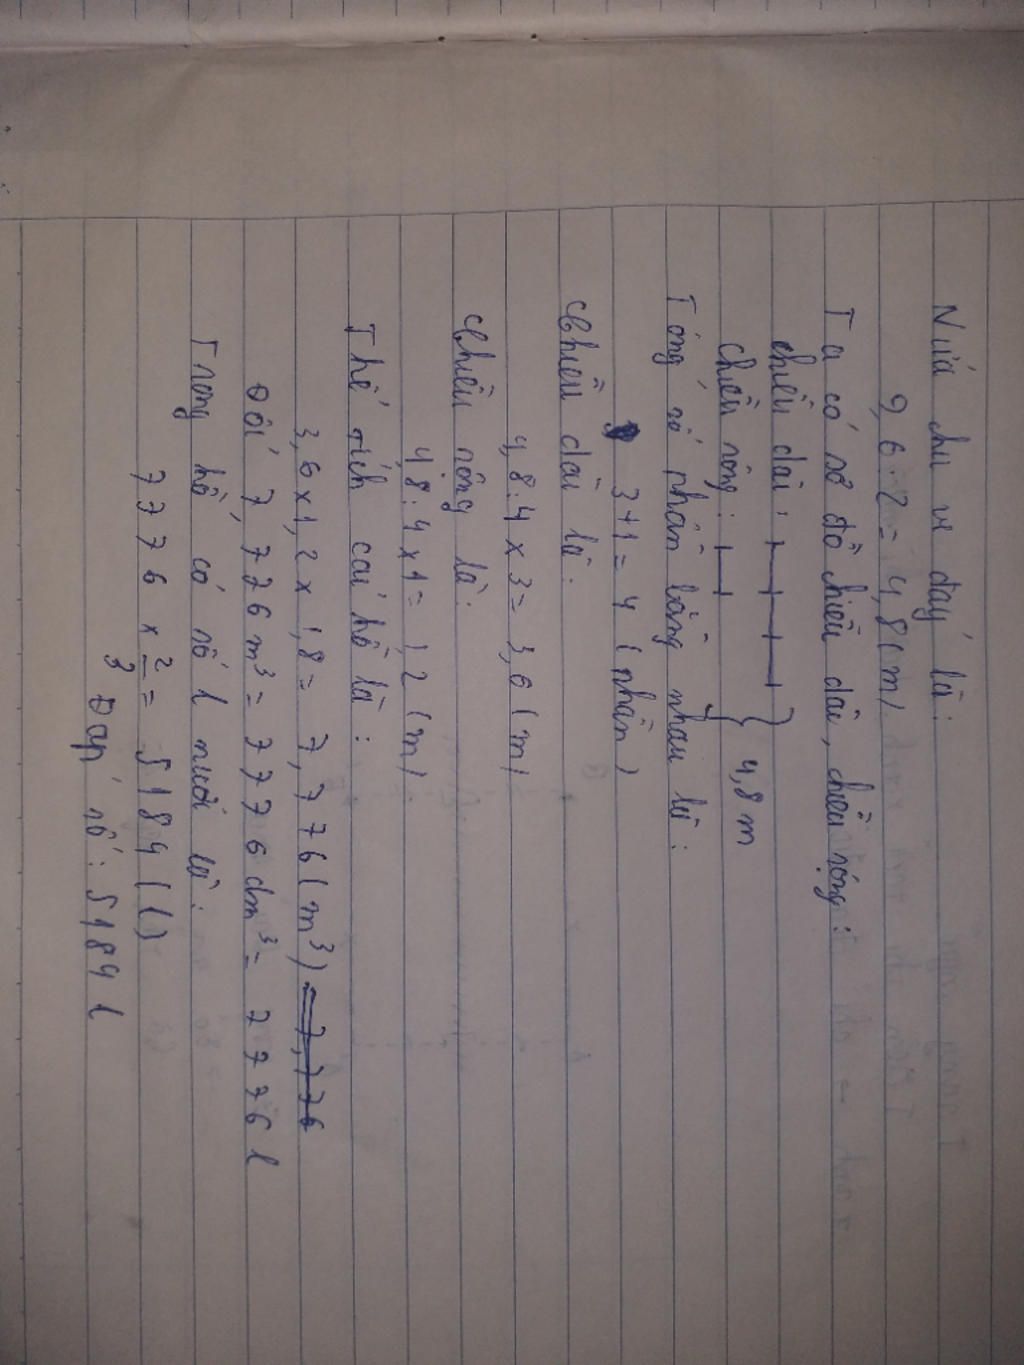 Nửa chu vi đáy là:
9,6 : 2 = 4,8 (m)
Ta có sơ đồ chiều dài, chiều rộng:
chiều dài:
chiều rộng:
4,8 m
Tổng số phần bằng nhau là:
3+1 = 4 (phần)
Chiều dài là:
4,8 : 4 x 3 = 3,6 (m)
Chiều rộng là:
4,8 : 4 x 1 = 1,2 (m)
Thể tích cái hồ là:
3,6 x 1,2 x 1,8 = 7,776 (m³) = 7,776
Đổi 7,776 m³ = 7776 dm³ = 7776 l
Trong hồ có số l nước là:
7776 x 2/3 = 5184 (l)
Đáp số: 5184 l